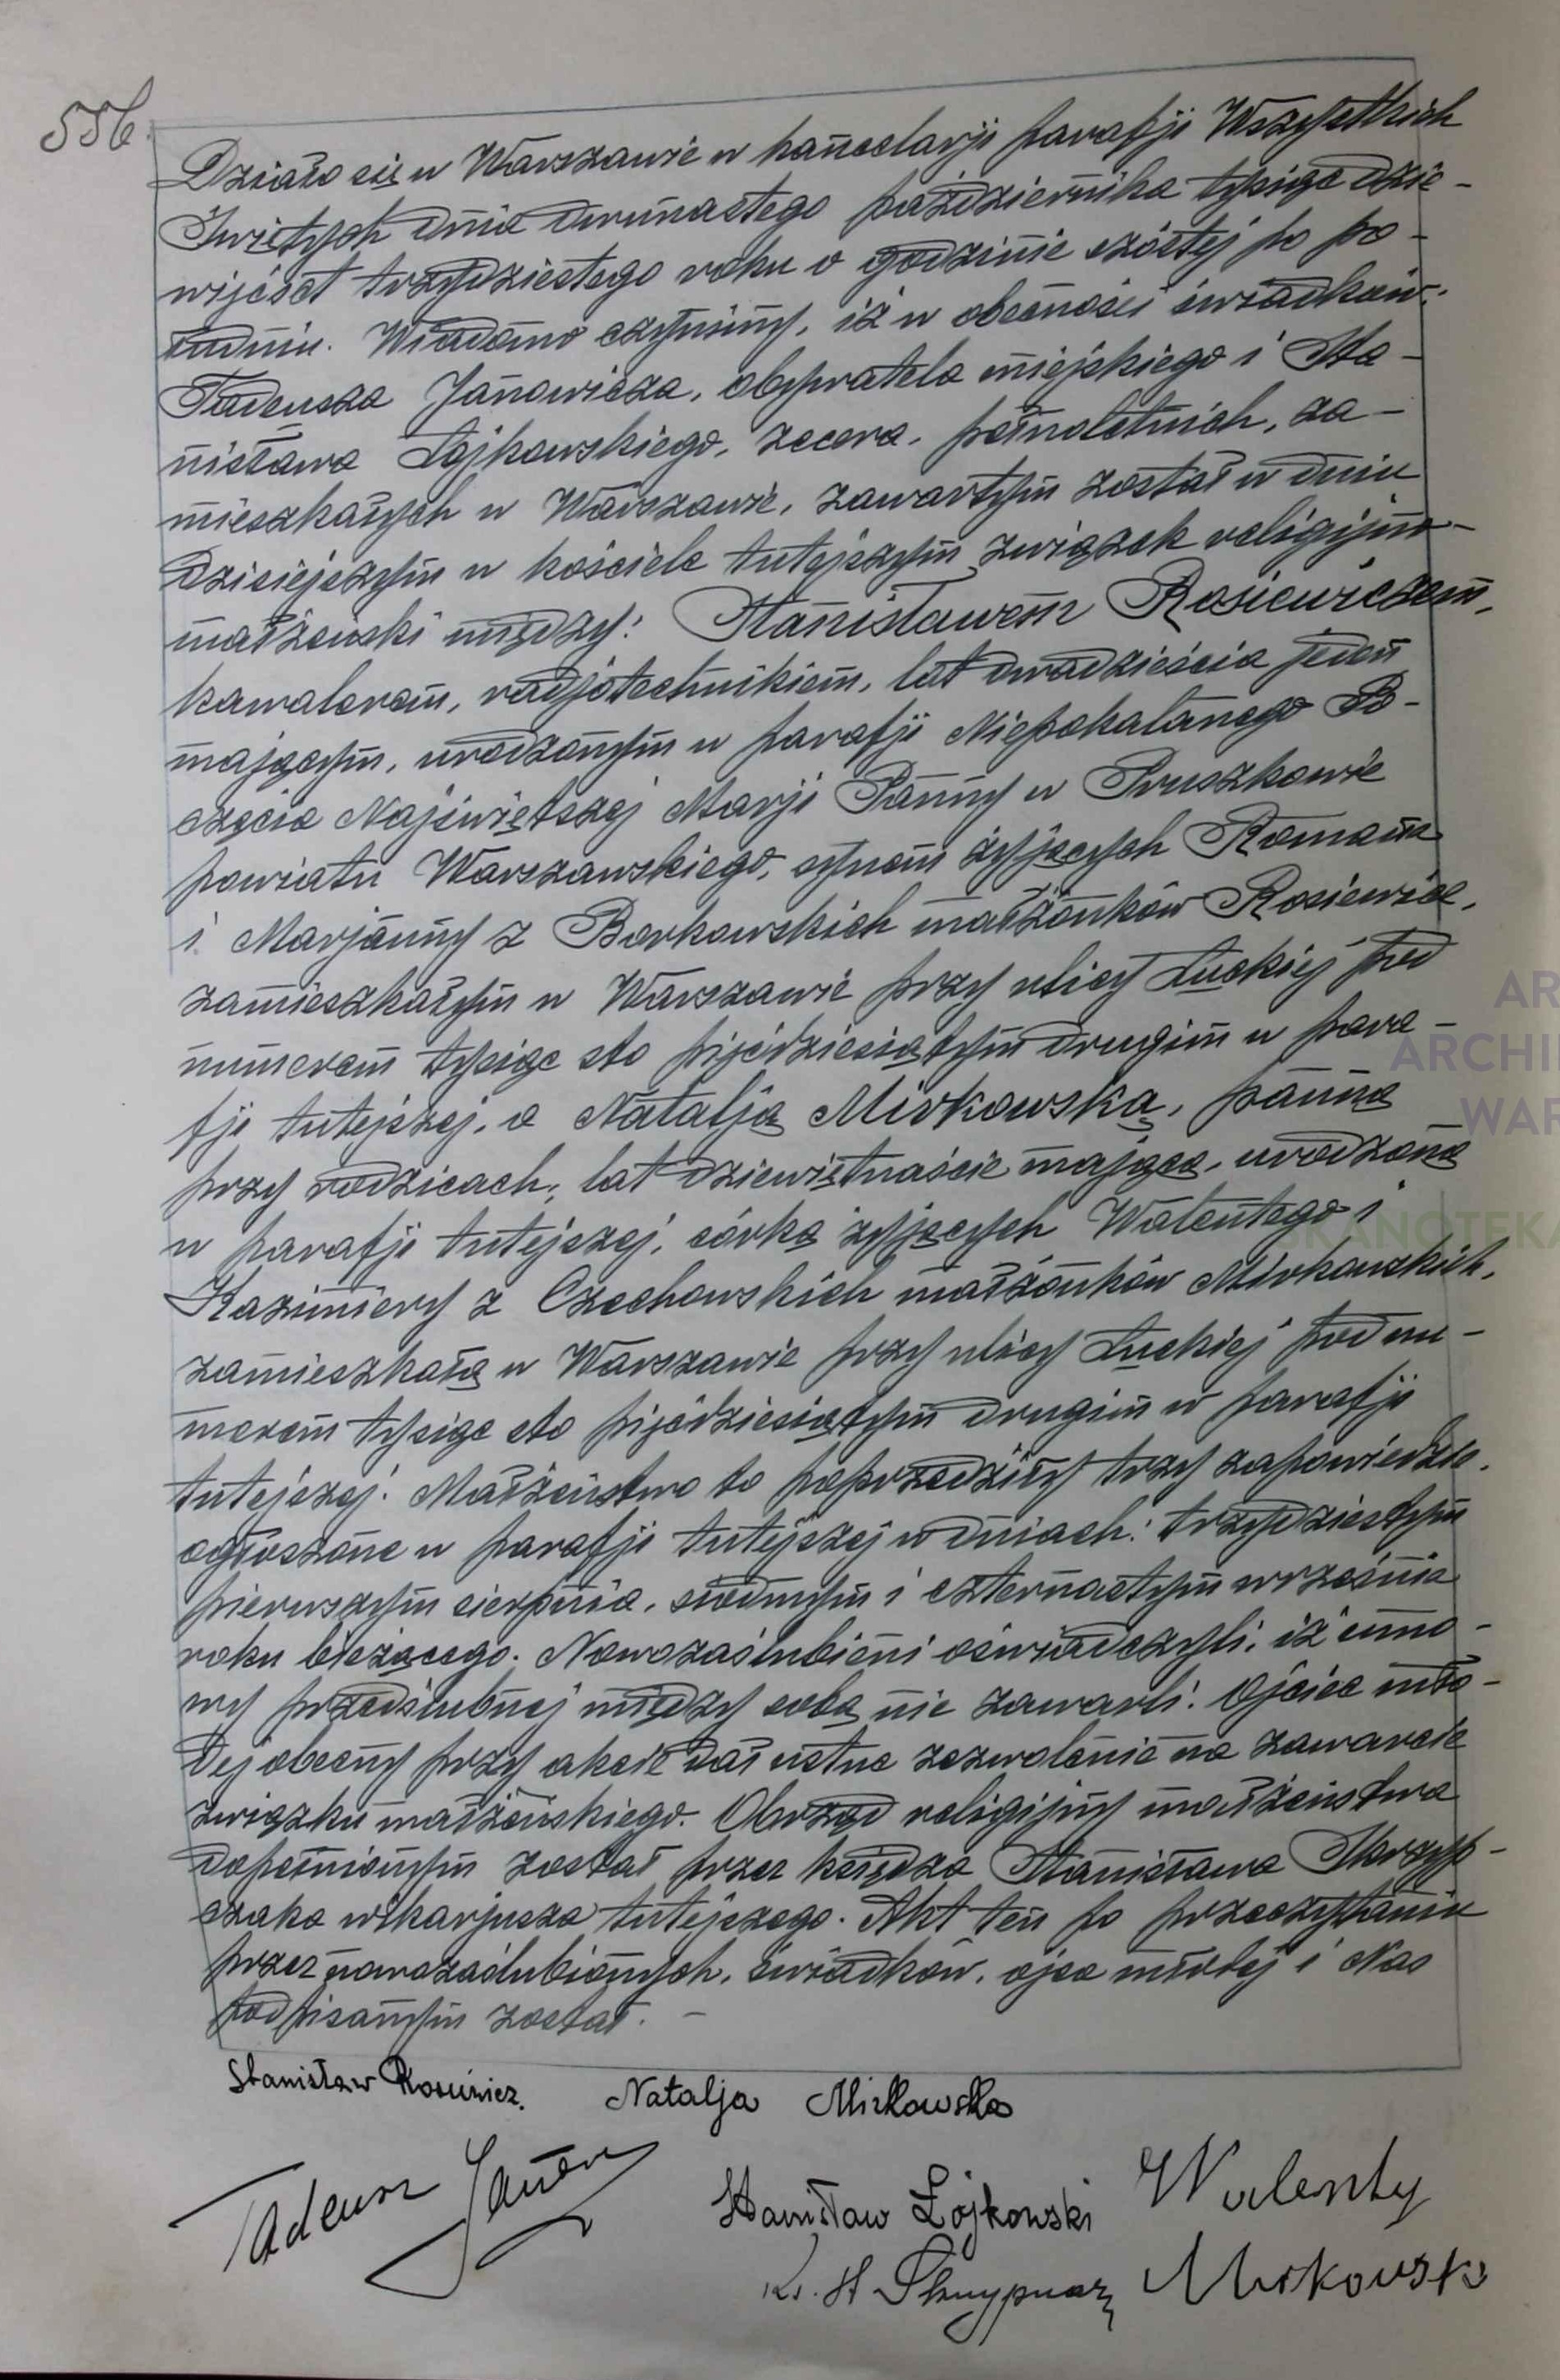 556.
Działo się w Warszawie w kancelarji parafji Wszystkich
Świętych dnia dwunastego października tysiąc dzie-
więćset trzydziestego roku o godzinie szóstej po po-
łudniu. Wiadomo czynimy, iż w obecności świadków:
Tadeusza Janowicza, obywatela miejskiego i Sta-
nisława Łojkowskiego, zecera, pełnoletnich, za-
mieszkałych w Warszawie, zawartym został w dniu
dzisiejszym w kościele tutejszym związek religijno-
małżeński między: Stanisławem Rosiewiczem,
kawalerem, radjotechnikiem, lat dwadzieścia jeden
mającym, urodzonym w parafji Niepokalanego Po-
częcia Najświętszej Marji Panny w Pruszkowie
powiatu Warszawskiego, synem żyjących Romana
i Marjanny z Borkowskich małżonków Rosiewicz,
zamieszkałym w Warszawie przy ulicy Łuckiej pod
numerem tysiąc sto pięćdziesiątym drugim w para-
fji tutejszej, a Natalją Mirkowską, panną
przy rodzicach, lat dziewiętnaście mającą, urodzoną
w parafji tutejszej, córką żyjących Walentego i
Kazimiery z Czechowskich małżonków Mirkowskich,
zamieszkałą w Warszawie przy ulicy Łuckiej pod nu-
merem tysiąc sto pięćdziesiątym drugim w parafji
tutejszej. Małżeństwo to poprzedziły trzy zapowiedzie,
ogłoszone w parafji tutejszej w dniach: trzydziestym
pierwszym sierpnia, siódmym i czternastym września
roku bieżącego. Nowozaślubieni oświadczyli, iż umo-
wy przedślubnej między sobą nie zawarli. Ojciec mło-
dej obecny przy akcie dał ustne zezwolenie na zawarcie
związku małżeńskiego. Obrzęd religijny małżeństwa
dopełnionym został przez księdza Stanisława Skrzyp-
czaka wikarjusza tutejszego. Akt ten po przeczytaniu
przez nowozaślubionych, świadków, ojca młodej i Nas
podpisanym został. -
Stanisław Rosiewicz. Natalja Mirkowska
Tadeusz
Stanisław Łojkowski Walenty
Ks. St Mirkowski
AR
ARCHI
WAR
SKANOTEKA